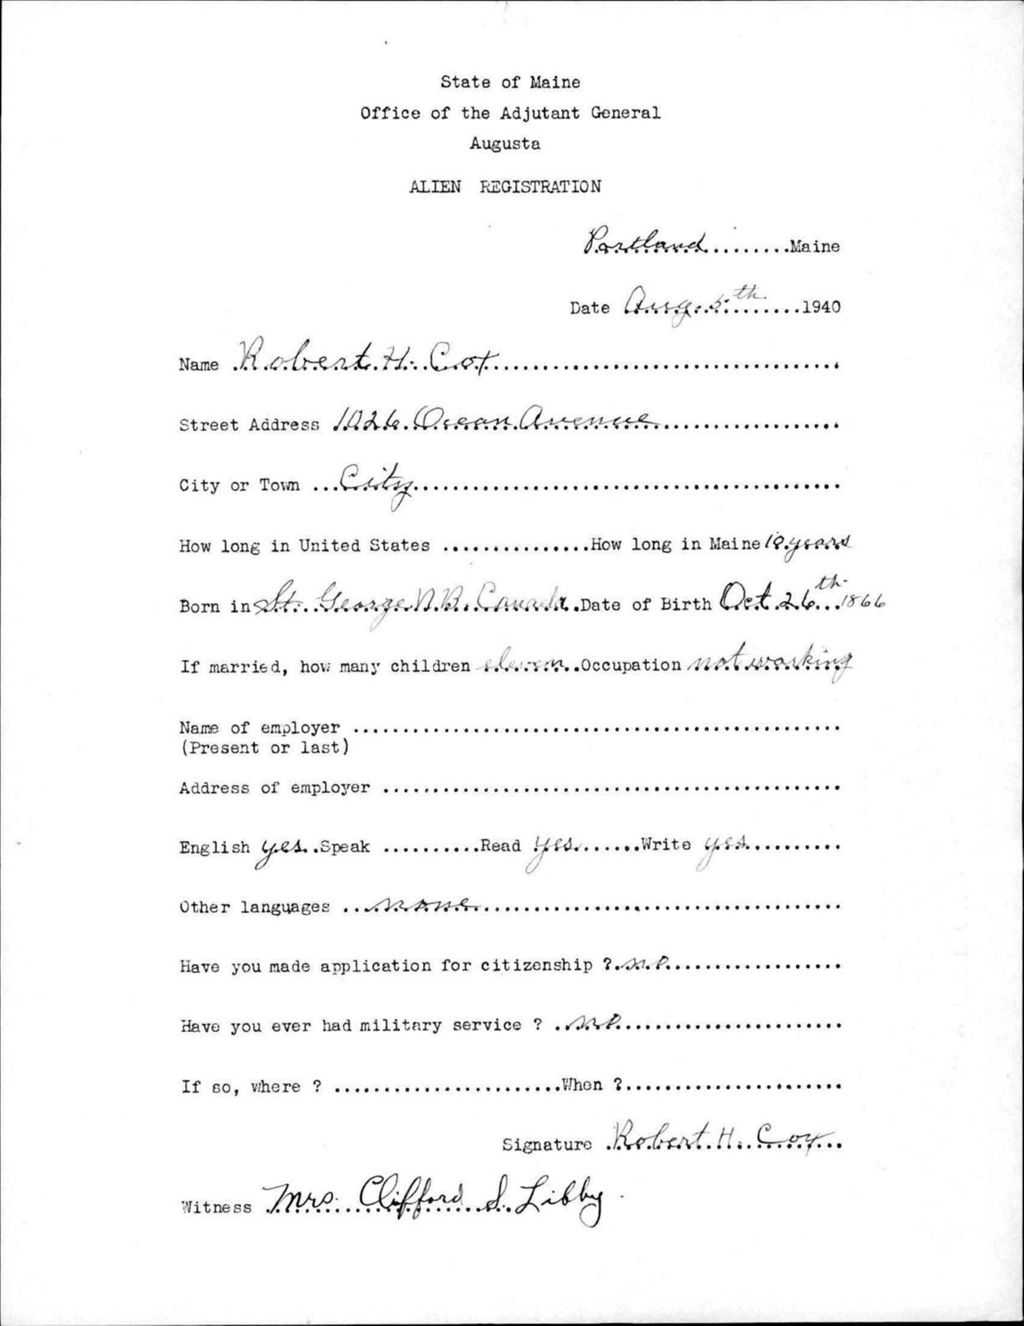 State of Maine
Office of the Adjutant General
Augusta
ALIEN REGISTRATION
Portland.........Maine
Date Aug. 5th.........1940
Name .Robert.H..Cox..................................
Street Address 1026.Ocean.Avenue......................
City or Town ...City...........................................
How long in United States ...............How long in Maine years
Born in St. George N.B. Canada..Date of Birth Oct.26th...1866
If married, how many children eleven..Occupation not working
Name of employer .................................................
(Present or last)
Address of employer ..............................................
English yes..Speak ..........Read yes.......Write yes..........
Other languages ...none.....................................
Have you made application for citizenship ?.no..................
Have you ever had military service ? ..no.......................
If so, where ? .......................When ?......................
Signature .Robert.H..Cox...
Witness Mrs. Clifford S. Libby